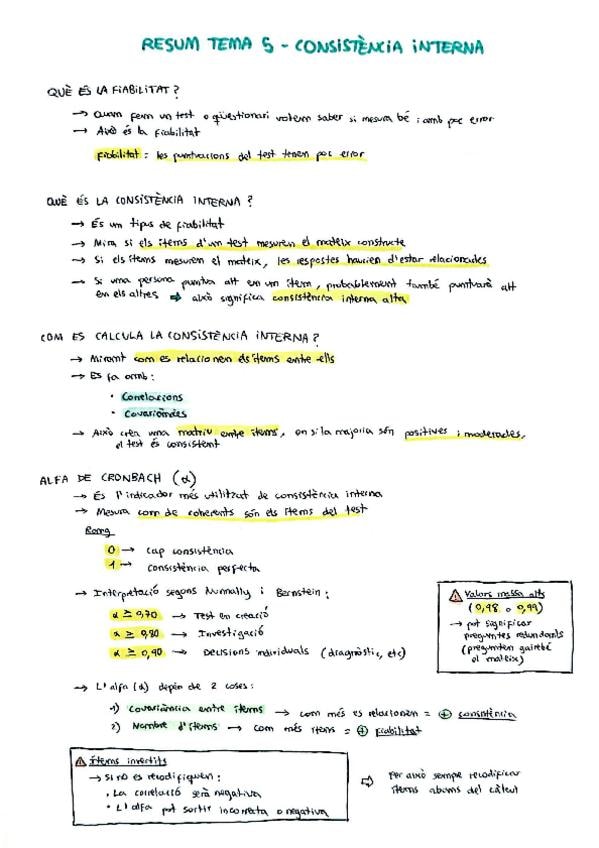 RESUM TEMA 5 - CONSISTÈNCIA INTERNA
QUÈ ÉS LA FIABILITAT?
→ Quan fem un test o qüestionari volem saber si mesura bé i amb poc error
→ Això és la fiabilitat
Fiabilitat: les puntuacions del test tenen poc error
QUÈ ÉS LA CONSISTÈNCIA INTERNA?
→ És un tipus de fiabilitat
→ Mira si els ítems d'un test mesuren el mateix constructe
→ Si els ítems mesuren el mateix, les respostes haurien d'estar relacionades
→ Si una persona puntua alt en un ítem, probablement també puntuarà alt
en els altres → això significa consistència interna alta
COM ES CALCULA LA CONSISTÈNCIA INTERNA?
→ Mirant com es relacionen els ítems entre ells
→ Es fa amb:
• Correlacions
• Covariàncies
→ Això crea una matriu entre ítems, on si la majoria són positives i moderades,
el test és consistent
ALFA DE CRONBACH (α)
→ És l'indicador més utilitzat de consistència interna
→ Mesura com de coherents són els ítems del test
Rang
0 → cap consistència
1 → consistència perfecta
→ Interpretació segons Nunnally i Bernstein:
α ≥ 0,70 → Test en creació
α ≥ 0,80 → Investigació
α ≥ 0,90 → Decisions individuals (diagnòstic, etc)
⚠ Valors massa alts
(0,98 o 0,99)
→ pot significar
preguntes redundants
(pregunten gairebé
el mateix)
→ L'alfa (α) depèn de 2 coses:
1) Covariància entre ítems → com més es relacionen = ⊕ consistència
2) Nombre d'ítems → com més ítems = ⊕ fiabilitat
⚠ Ítems invertits
→ Si no es recodifiquen:
• La correlació serà negativa
• L'alfa pot sortir incorrecta o negativa
⇨ Per això sempre recodificar
ítems abans del càlcul